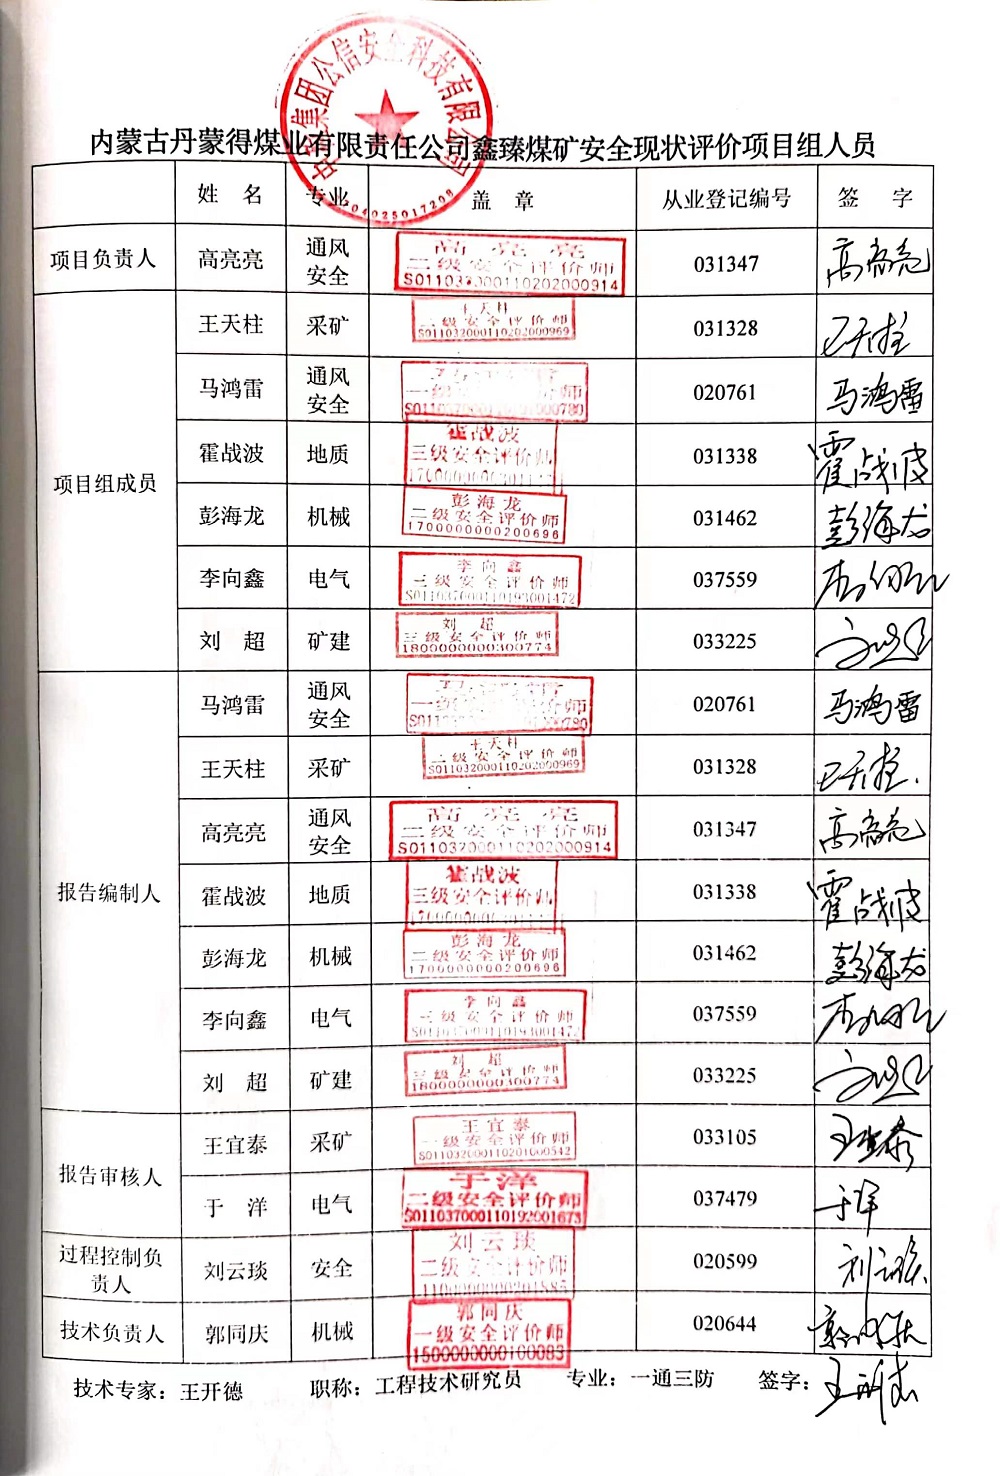 内蒙古丹蒙得煤业有限责任公司鑫臻煤矿安全现状评价项目组人员
集团公信安全科技有限公司
姓 名 专业 盖 章 从业登记编号 签 字
项目负责人 高亮亮 通风安全 高亮亮 二级安全评价师 S011032000110202000914 031347 高亮亮
项目组成员
王天柱 采矿 王天柱 二级安全评价师 S011032000110202000969 031328 王天柱
马鸿雷 通风安全 一级 价师 020761 马鸿雷
霍战波 地质 霍战波 三级安全评价师 031338 霍战波
彭海龙 机械 彭海龙 二级安全评价师 1700000000200696 031462 彭海龙
李向鑫 电气 李向鑫 三级安全评价师 S011037000110193001472 037559 李向鑫
刘 超 矿建 刘 超 三级安全评价师 1800000000300774 033225 刘超
报告编制人
马鸿雷 通风安全 一级 价师 020761 马鸿雷
王天柱 采矿 王天柱 二级安全评价师 S011032000110202000969 031328 王天柱
高亮亮 通风安全 高亮亮 二级安全评价师 S011032000110202000914 031347 高亮亮
霍战波 地质 霍战波 三级安全评价师 031338 霍战波
彭海龙 机械 彭海龙 二级安全评价师 1700000000200696 031462 彭海龙
李向鑫 电气 李向鑫 三级安全评价师 S011037000110193001472 037559 李向鑫
刘 超 矿建 刘 超 三级安全评价师 1800000000300774 033225 刘超
报告审核人
王宜泰 采矿 王宜泰 一级安全评价师 S011032000110201000542 033105 王宜泰
于 洋 电气 于洋 二级安全评价师 S011037000110192001673 037479 于洋
过程控制负责人 刘云琰 安全 刘云琰 二级安全评价师 020599 刘云琰
技术负责人 郭同庆 机械 郭同庆 一级安全评价师 1500000000100083 020644 郭同庆
技术专家：王开德 职称：工程技术研究员 专业：一通三防 签字：王开德